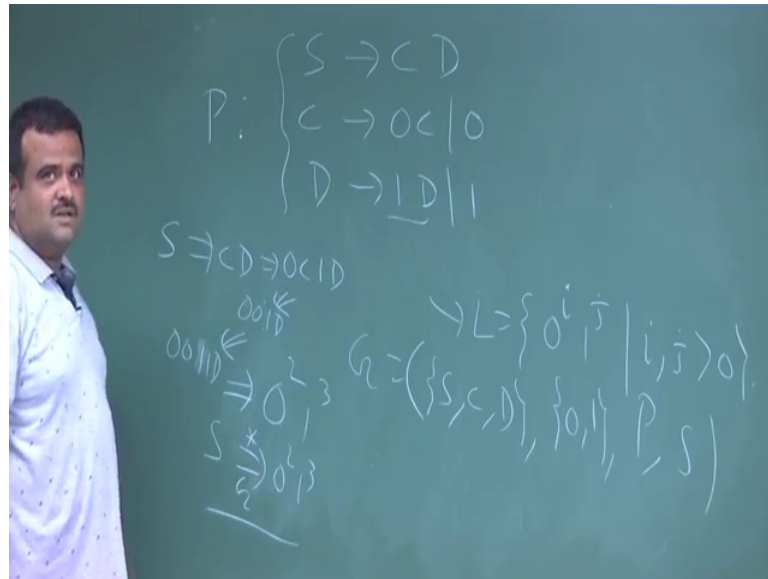 S → C D
P: C → 0C | 0
D → 1D | 1
S ⇒ CD ⇒ 0C1D
001D ⇐
⇐
⇒ 0² 1³
S ⇒* G 0² 1³
→ L = { 0^i 1^j | i, j > 0 }.
G = ({S, C, D}, {0, 1}, P, S)